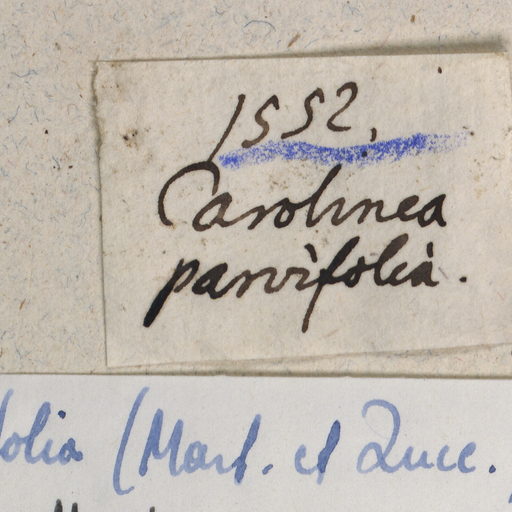 1552.
Carolinea
parvifolia.
folia (Mart. et Zucc.